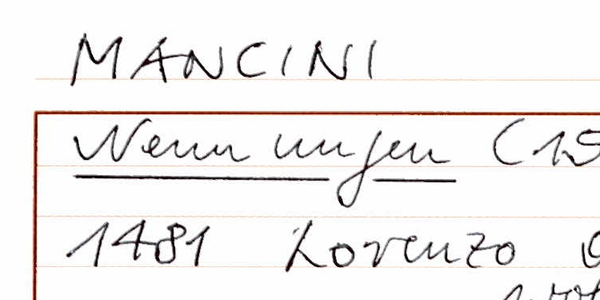 MANCINI
Nennungen (15
1481 Lorenzo